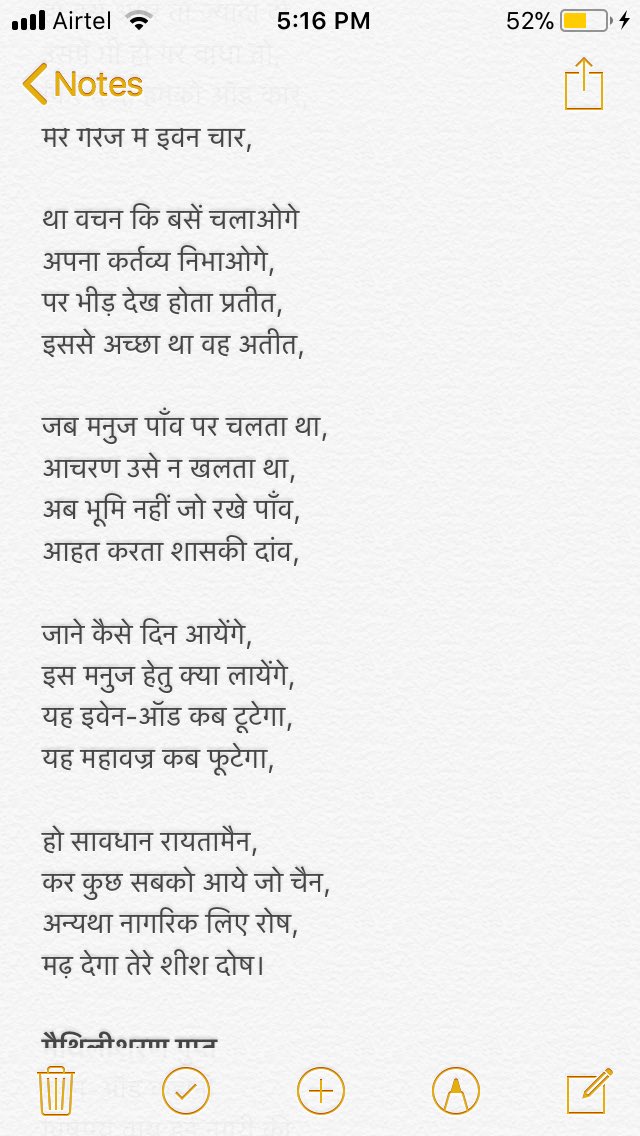 Airtel 5:16 PM 52%
Notes
मेरे गैरेज में इवेन चार,
था वचन कि बसें चलाओगे
अपना कर्तव्य निभाओगे,
पर भीड़ देख होता प्रतीत,
इससे अच्छा था वह अतीत,
जब मनुज पाँव पर चलता था,
आचरण उसे न खलता था,
अब भूमि नहीं जो रखे पाँव,
आहत करता शासकी दांव,
जाने कैसे दिन आयेंगे,
इस मनुज हेतु क्या लायेंगे,
यह इवेन-ऑड कब टूटेगा,
यह महावज्र कब फूटेगा,
हो सावधान रायतामैन,
कर कुछ सबको आये जो चैन,
अन्यथा नागरिक लिए रोष,
मढ़ देगा तेरे शीश दोष।